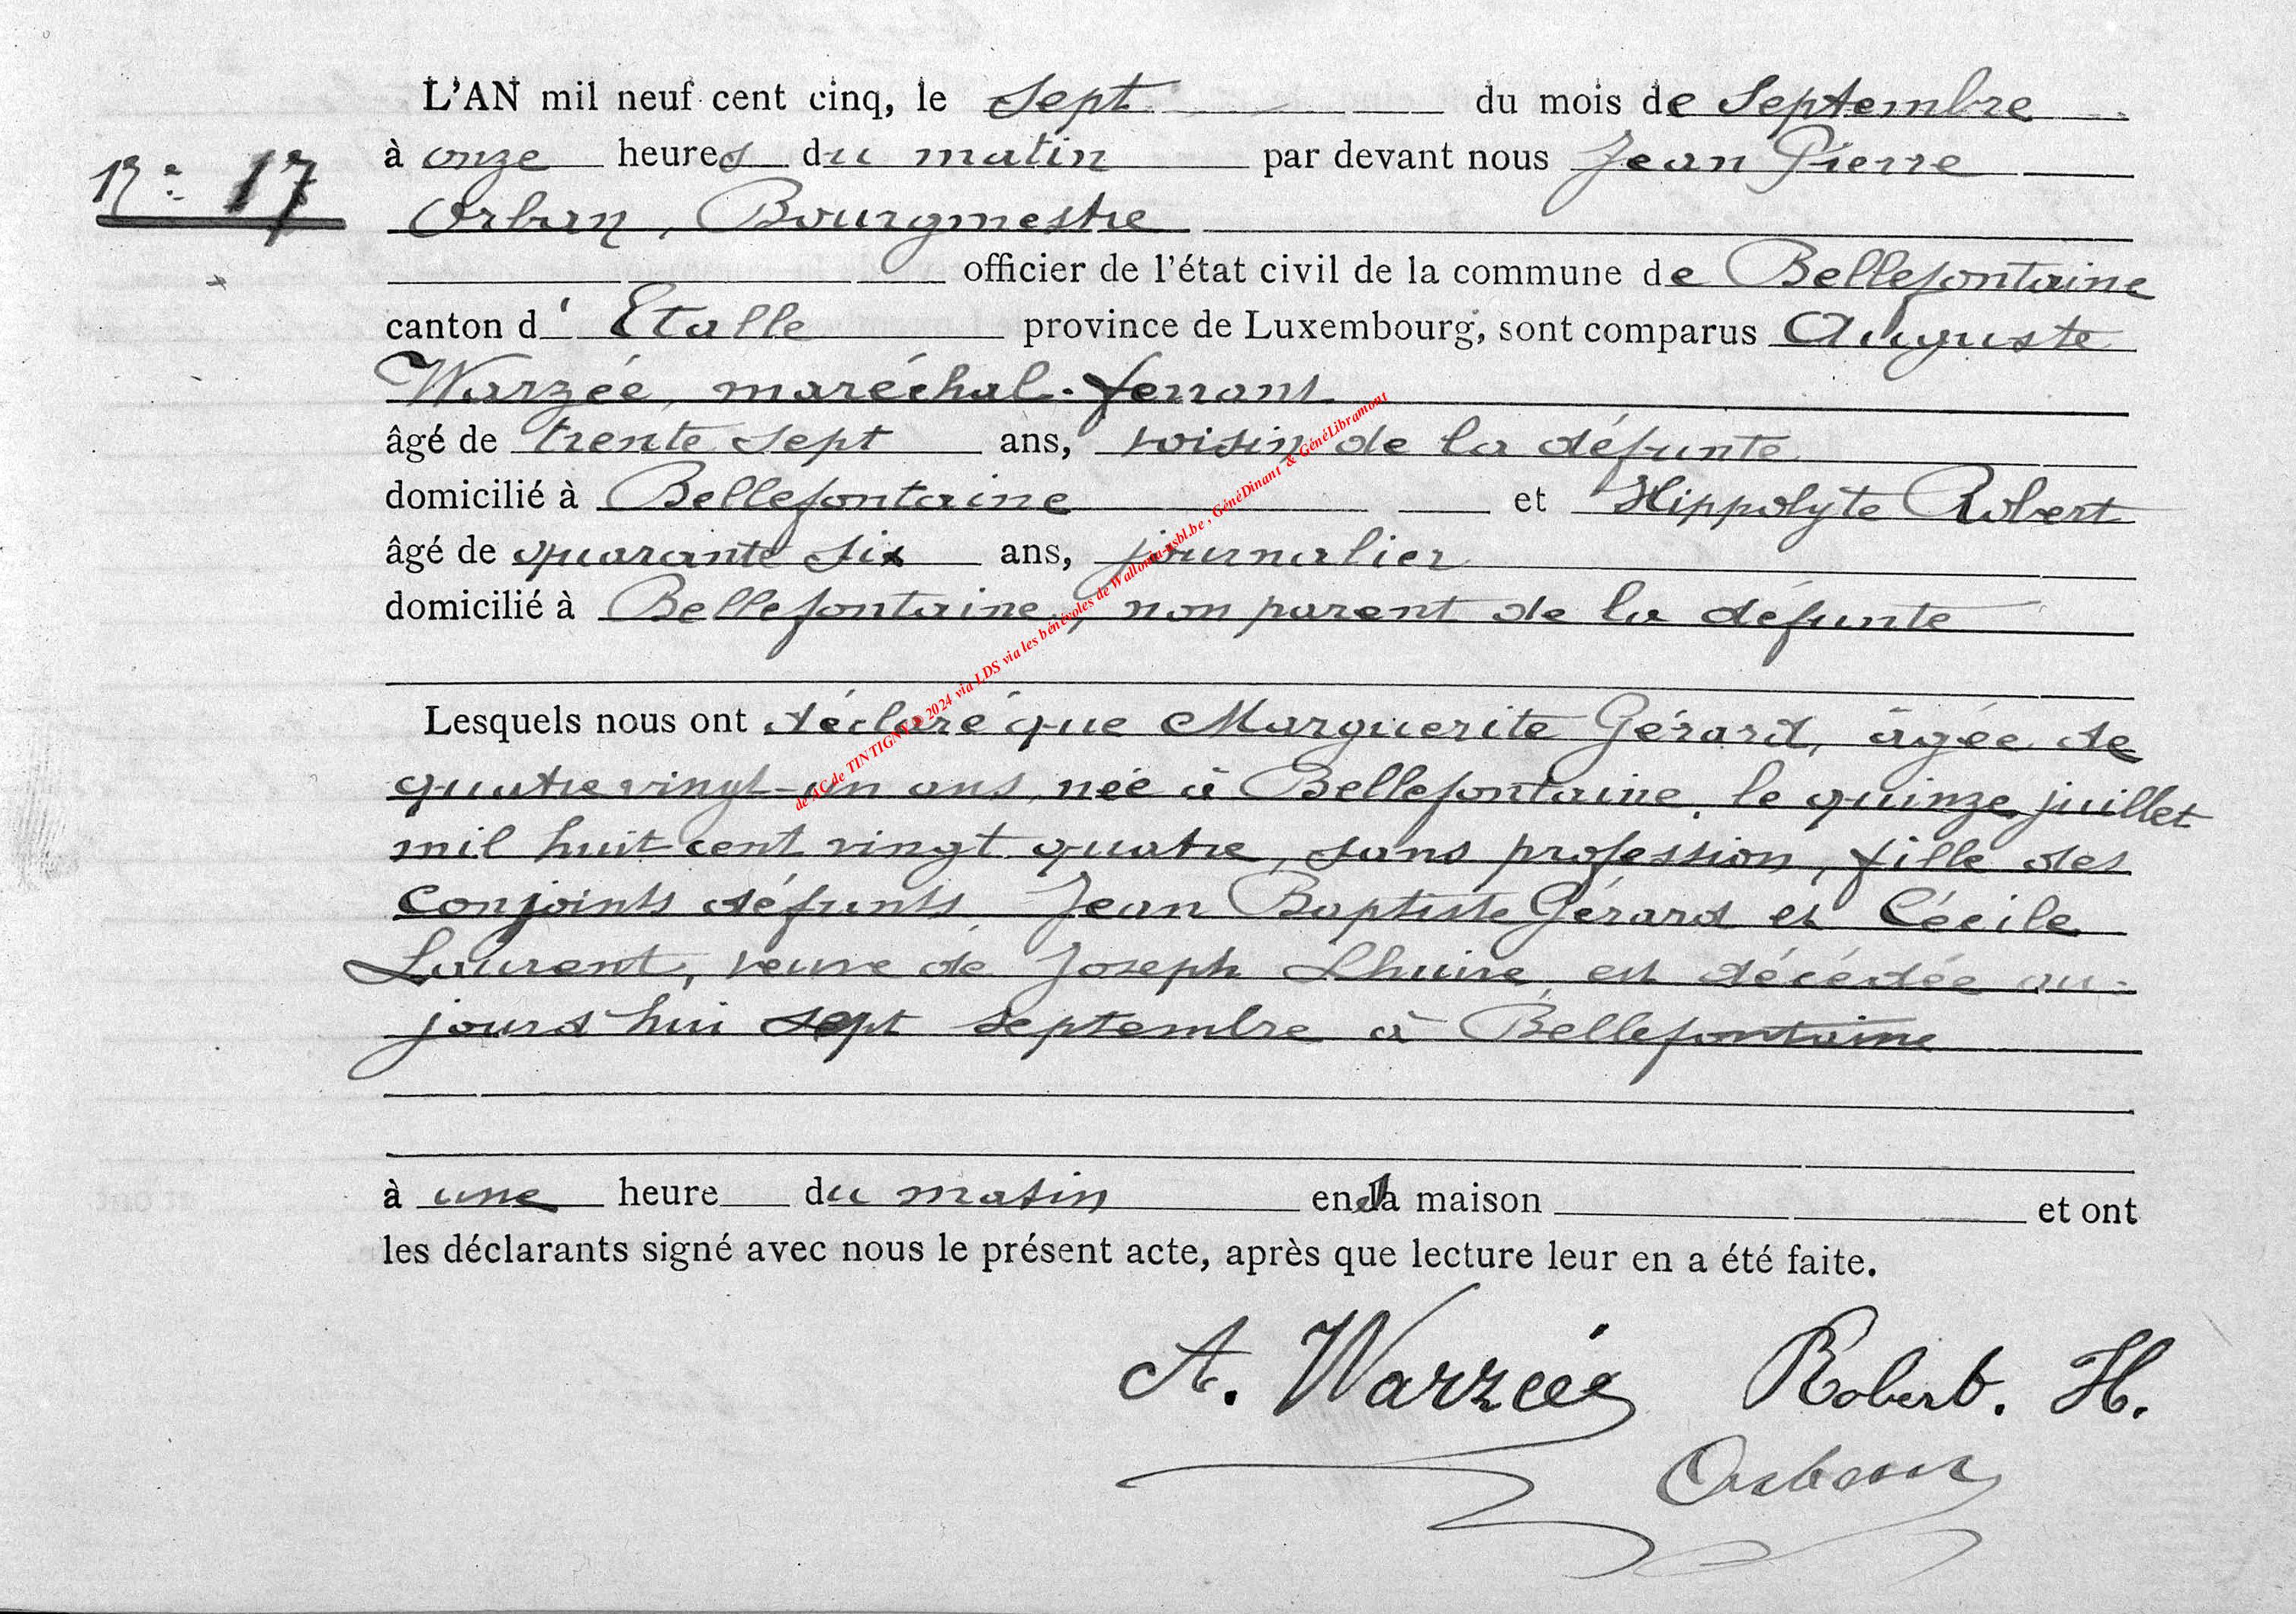 L'AN mil neuf cent cinq, le sept du mois de Septembre
à onze heures du matin par devant nous Jean Pierre
N° 17
Orban, Bourgmestre
officier de l'état civil de la commune de Bellefontaine
canton d'Etalle province de Luxembourg, sont comparus Auguste
Warzée, maréchal-ferrant
âgé de trente sept ans, voisin de la défunte
domicilié à Bellefontaine et Hippolyte Robert
âgé de quarante six ans, journalier
domicilié à Bellefontaine, non parent de la défunte
Lesquels nous ont déclaré que Marguerite Gérard, âgée de
quatre vingt-un ans, née à Bellefontaine, le quinze juillet
mil huit cent vingt quatre, sans profession, fille des
conjoints défunts Jean Baptiste Gérard et Cécile
Laurent, veuve de Joseph Lhuire, est décédée au-
jourd'hui sept septembre à Bellefontaine
à une heure du matin en sa maison et ont
les déclarants signé avec nous le présent acte, après que lecture leur en a été faite.
A. Warzée Robert. H.
Orban
de AC de TINTIGNY © 2024 via LDS via les bénévoles de Wallonia-asbl.be, GénéDinant & GénéLibramont